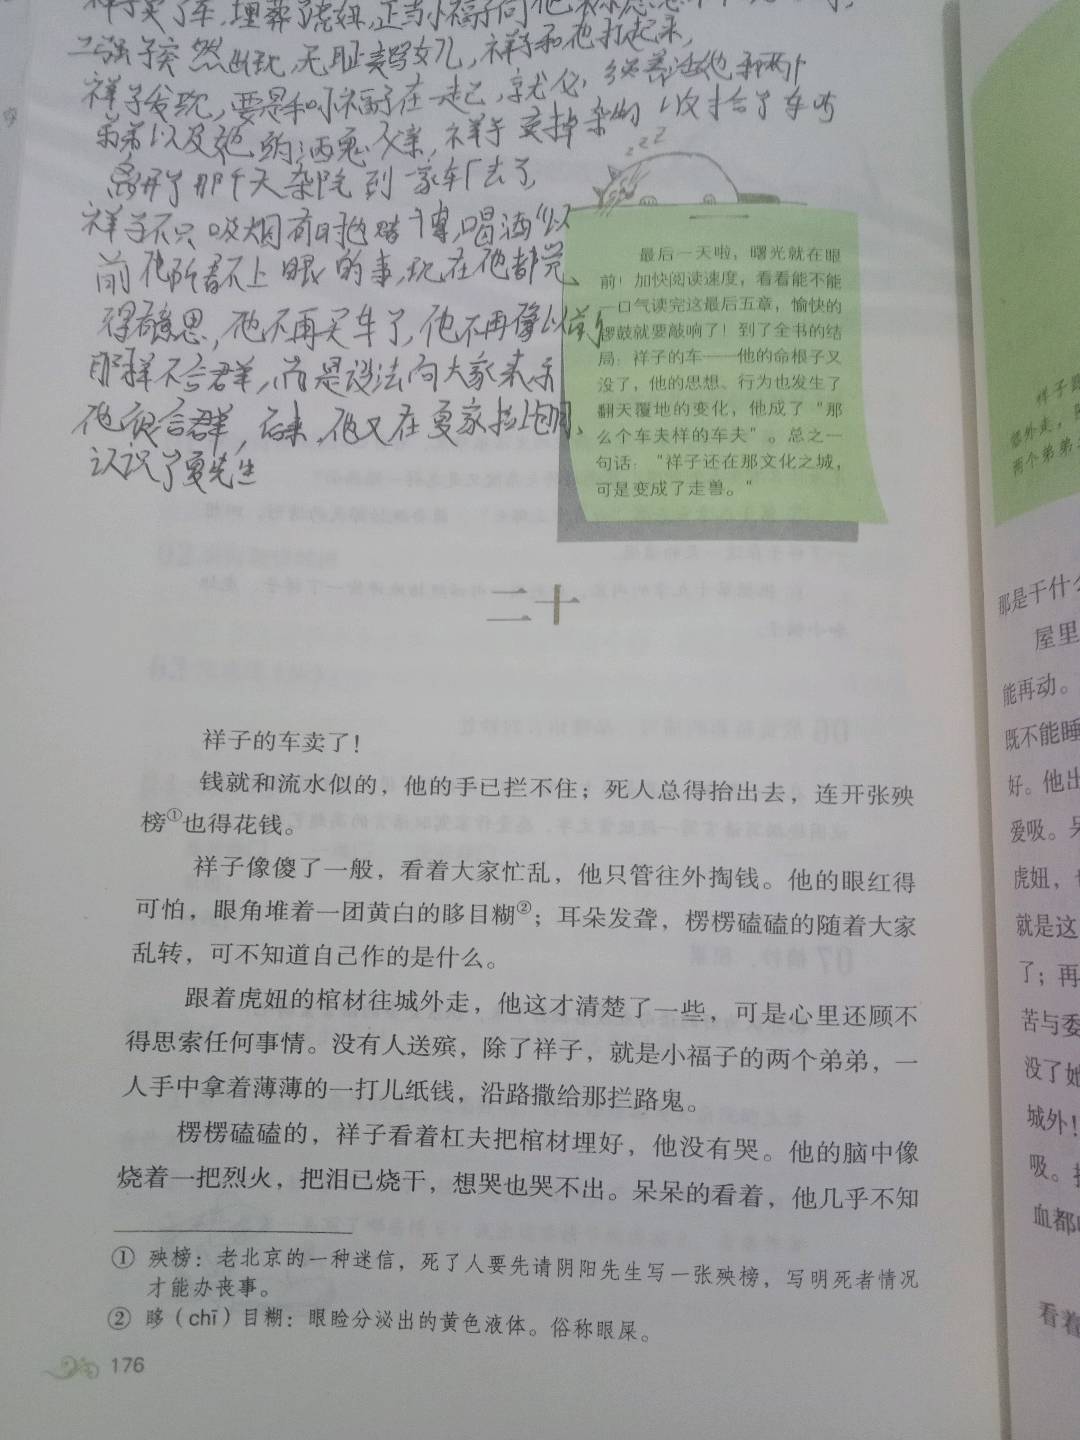 祥子卖了车,埋葬了虎妞,正当小福子向他
二强子突然出现,无耻卖骂女儿,祥子和他打起来,
祥子发现,要是和小福子在一起,就必须养活她和两个
弟弟以及她的酒鬼父亲,祥子卖掉杂物
离开了那个大杂院到一家车厂去了,
祥子不只吸烟有时也赌博,喝酒以
前他所看不上眼的事,现在他都觉
得有意思,他不再买车了,他不再像以前
那样不合群,而是设法向大家表示
他很合群,后来,他又在夏家拉上包月、
认识了夏先生
zzZ
最后一天啦，曙光就在眼
前！加快阅读速度，看看能不能
一口气读完这最后五章，愉快的
锣鼓就要敲响了！到了全书的结
局：祥子的车——他的命根子又
没了，他的思想、行为也发生了
翻天覆地的变化，他成了“那
么个车夫样的车夫”。总之一
句话：“祥子还在那文化之城，
可是变成了走兽。”
二十
祥子的车卖了！
钱就和流水似的，他的手已拦不住；死人总得抬出去，连开张殃
榜①也得花钱。
祥子像傻了一般，看着大家忙乱，他只管往外掏钱。他的眼红得
可怕，眼角堆着一团黄白的眵目糊②；耳朵发聋，楞楞磕磕的随着大家
乱转，可不知道自己作的是什么。
跟着虎妞的棺材往城外走，他这才清楚了一些，可是心里还顾不
得思索任何事情。没有人送殡，除了祥子，就是小福子的两个弟弟，一
人手中拿着薄薄的一打儿纸钱，沿路撒给那拦路鬼。
楞楞磕磕的，祥子看着杠夫把棺材埋好，他没有哭。他的脑中像
烧着一把烈火，把泪已烧干，想哭也哭不出。呆呆的看着，他几乎不知
① 殃榜：老北京的一种迷信，死了人要先请阴阳先生写一张殃榜，写明死者情况
才能办丧事。
② 眵（chī）目糊：眼睑分泌出的黄色液体。俗称眼屎。
176
祥子跟
城外走，
两个弟弟
那是干什么
屋里
能再动。
既不能睡
好。他出
爱吸。呆
虎妞，
就是这
了；再
苦与委
没了她
城外！
吸。
血都
看着